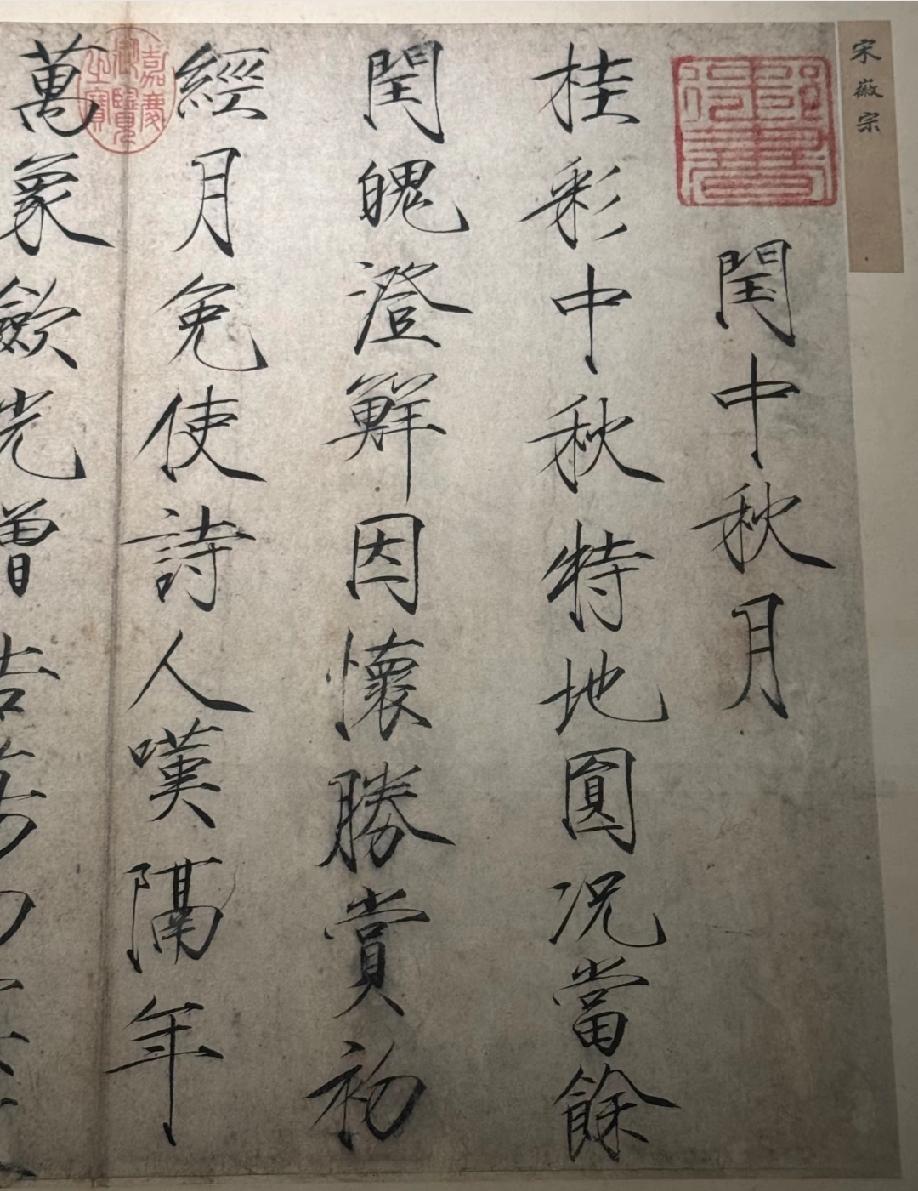 宋徽宗
御書
閏中秋月
桂彩中秋特地圓况當餘
閏魄澄鮮因懷勝賞初
經月免使詩人嘆隔年
嘉慶御覽之寶
萬象歛光